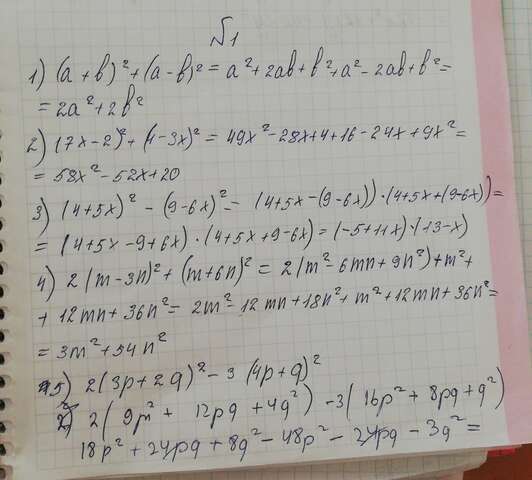 №1
1) (a + b)² + (a - b)² = a² + 2ab + b² + a² - 2ab + b² =
= 2a² + 2b²
2) (7x - 2)² + (4 - 3x)² = 49x² - 28x + 4 + 16 - 24x + 9x² =
= 58x² - 52x + 20
3) (4 + 5x)² - (9 - 6x)² = (4 + 5x - (9 - 6x)) · (4 + 5x + (9 - 6x)) =
= (4 + 5x - 9 + 6x) · (4 + 5x + 9 - 6x) = (-5 + 11x) · (13 - x)
4) 2(m - 3n)² + (m + 6n)² = 2(m² - 6mn + 9n²) + m² +
+ 12mn + 36n² = 2m² - 12mn + 18n² + m² + 12mn + 36n² =
= 3m² + 54n²
5) 2(3p + 2q)² - 3(4p + q)²
2(9p² + 12pq + 4q²) - 3(16p² + 8pq + q²)
18p² + 24pq + 8q² - 48p² - 24pq - 3q² =